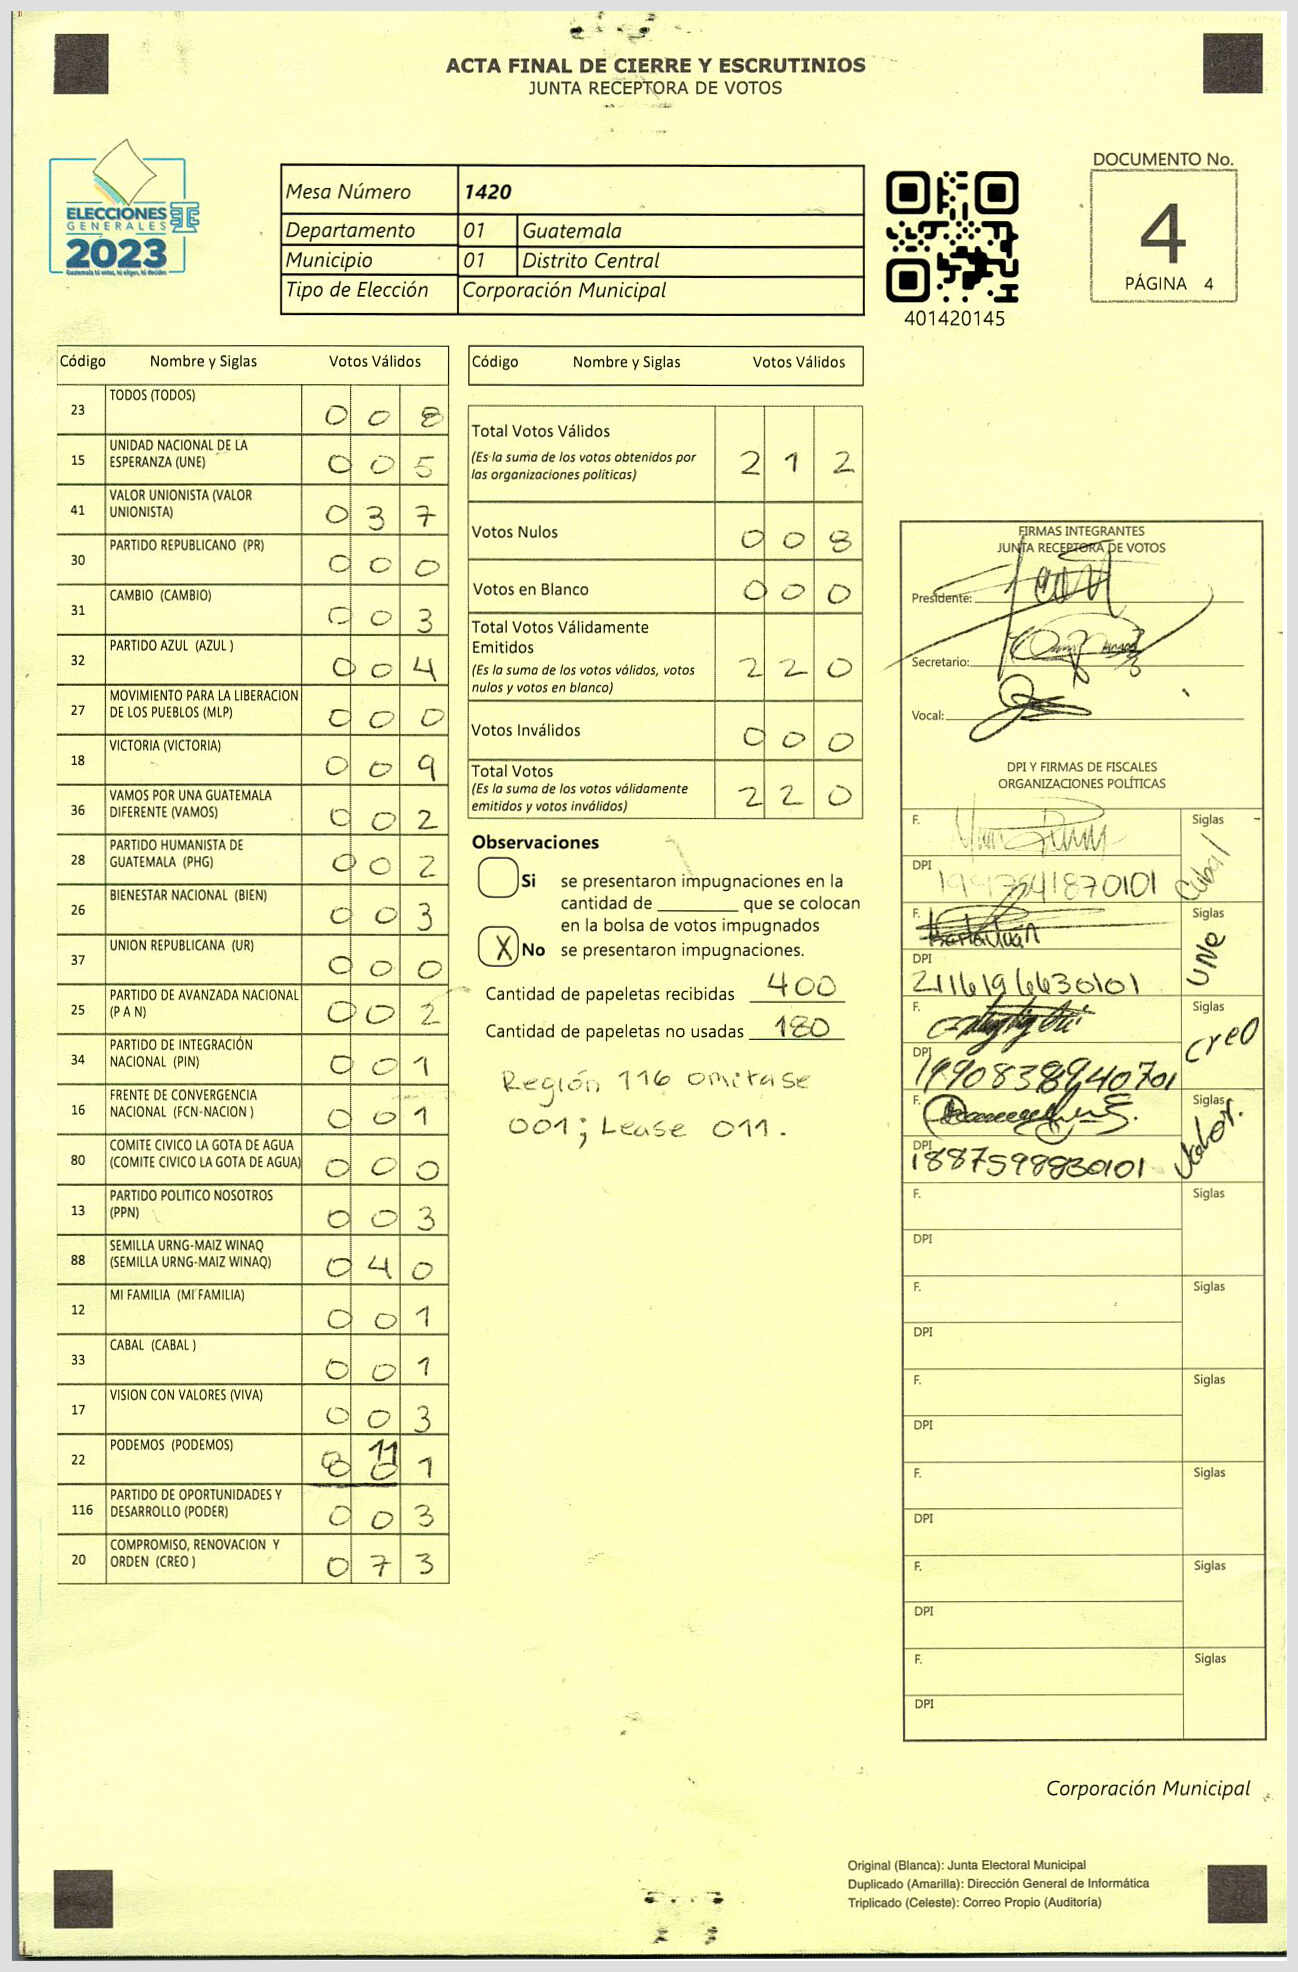 ACTA FINAL DE CIERRE Y ESCRUTINIOS
JUNTA RECEPTORA DE VOTOS
ELECCIONES
GENERALES
2023
Guatemala tú votas, tú eliges, tú decides
Mesa Número 1420
Departamento 01 Guatemala
Municipio 01 Distrito Central
Tipo de Elección Corporación Municipal
401420145
DOCUMENTO No.
4
PÁGINA 4
Código Nombre y Siglas Votos Válidos
23 TODOS (TODOS) 0 0 8
15 UNIDAD NACIONAL DE LA
ESPERANZA (UNE) 0 0 5
41 VALOR UNIONISTA (VALOR
UNIONISTA) 0 3 7
30 PARTIDO REPUBLICANO (PR) 0 0 0
31 CAMBIO (CAMBIO) 0 0 3
32 PARTIDO AZUL (AZUL ) 0 0 4
27 MOVIMIENTO PARA LA LIBERACION
DE LOS PUEBLOS (MLP) 0 0 0
18 VICTORIA (VICTORIA) 0 0 9
36 VAMOS POR UNA GUATEMALA
DIFERENTE (VAMOS) 0 0 2
28 PARTIDO HUMANISTA DE
GUATEMALA (PHG) 0 0 2
26 BIENESTAR NACIONAL (BIEN) 0 0 3
37 UNION REPUBLICANA (UR) 0 0 0
25 PARTIDO DE AVANZADA NACIONAL
(P A N) 0 0 2
34 PARTIDO DE INTEGRACIÓN
NACIONAL (PIN) 0 0 1
16 FRENTE DE CONVERGENCIA
NACIONAL (FCN-NACION ) 0 0 1
80 COMITE CIVICO LA GOTA DE AGUA
(COMITE CIVICO LA GOTA DE AGUA) 0 0 0
13 PARTIDO POLITICO NOSOTROS
(PPN) 0 0 3
88 SEMILLA URNG-MAIZ WINAQ
(SEMILLA URNG-MAIZ WINAQ) 0 4 0
12 MI FAMILIA (MI FAMILIA) 0 0 1
33 CABAL (CABAL ) 0 0 1
17 VISION CON VALORES (VIVA) 0 0 3
22 PODEMOS (PODEMOS) 11
0 0 1
116 PARTIDO DE OPORTUNIDADES Y
DESARROLLO (PODER) 0 0 3
20 COMPROMISO, RENOVACION Y
ORDEN (CREO ) 0 7 3
Código Nombre y Siglas Votos Válidos
Total Votos Válidos
(Es la suma de los votos obtenidos por
las organizaciones políticas) 2 1 2
Votos Nulos 0 0 8
Votos en Blanco 0 0 0
Total Votos Válidamente
Emitidos
(Es la suma de los votos válidos, votos
nulos y votos en blanco) 2 2 0
Votos Inválidos 0 0 0
Total Votos
(Es la suma de los votos válidamente
emitidos y votos inválidos) 2 2 0
Observaciones
Si se presentaron impugnaciones en la
cantidad de ________ que se colocan
en la bolsa de votos impugnados
X No se presentaron impugnaciones.
Cantidad de papeletas recibidas 400
Cantidad de papeletas no usadas 180
Región 116 omitase
001; Lease 011.
FIRMAS INTEGRANTES
JUNTA RECEPTORA DE VOTOS
Presidente:
Secretario:
Vocal:
DPI Y FIRMAS DE FISCALES
ORGANIZACIONES POLÍTICAS
F. Siglas
DPI Cabal
F. Siglas
DPI 2116196630101 UNe
F. Siglas
DPI 1990838940701 creo
F. Siglas
DPI 1887598830101 Valor.
F. Siglas
DPI
F. Siglas
DPI
F. Siglas
DPI
F. Siglas
DPI
F. Siglas
DPI
F. Siglas
DPI
Corporación Municipal
Original (Blanca): Junta Electoral Municipal
Duplicado (Amarilla): Dirección General de Informática
Triplicado (Celeste): Correo Propio (Auditoría)